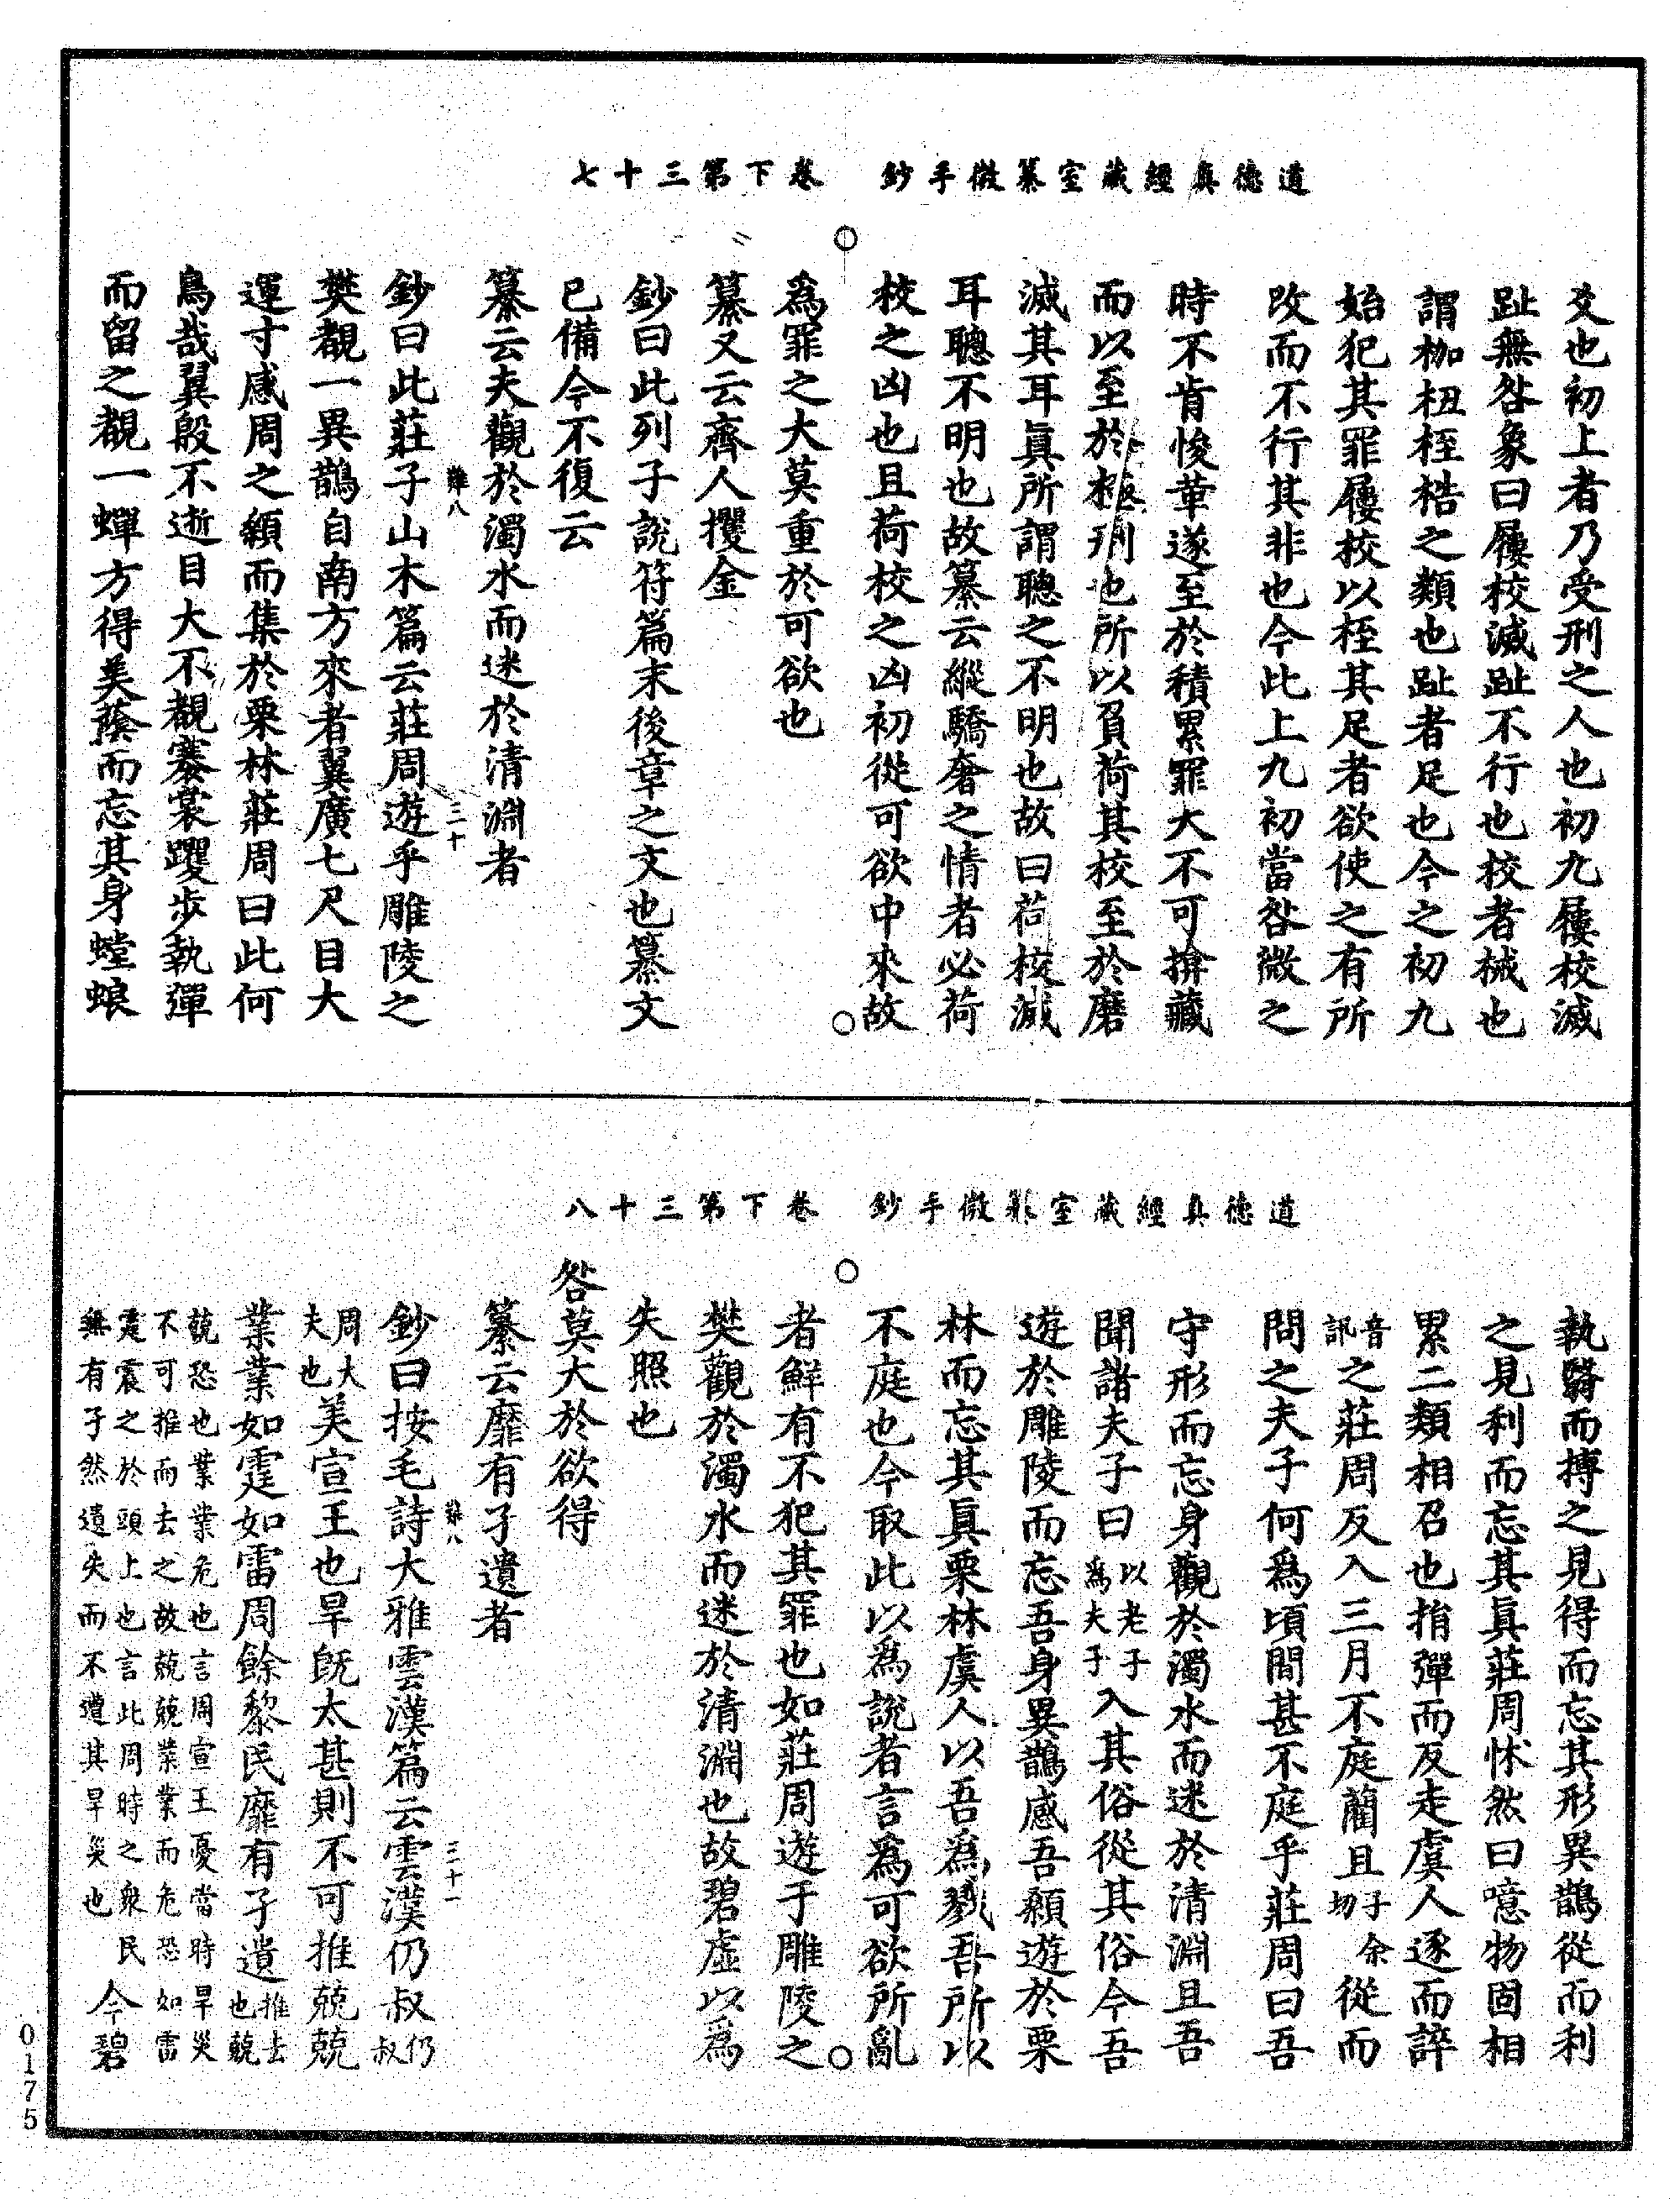 道德真經藏室纂微手鈔　卷下第三十七
爻也初上者乃受刑之人也初九屨校滅
趾無咎象曰屨校滅趾不行也校者械也
謂枷杻桎梏之類也趾者足也今之初九
始犯其罪屨校以桎其足者欲使之有所
改而不行其非也今此上九初當咎微之
時不肯悛革遂至於積累罪大不可揜藏
而以至於極刑也所以負荷其校至於磨
滅其耳眞所謂聰之不明也故曰荷校滅
耳聰不明也故纂云縱驕奢之情者必荷
校之凶也且荷校之凶初從可欲中來故
爲罪之大莫重於可欲也
纂又云齊人攫金
鈔曰此列子說符篇末後章之文也纂文
已備今不復云
纂云夫觀於濁水而迷於清淵者
難八　三十
鈔曰此莊子山木篇云莊周遊乎雕陵之
樊覩一異鵲自南方來者翼廣七尺目大
運寸感周之顙而集於栗林莊周曰此何
鳥哉翼殷不逝目大不覩褰裳躩步執彈
而留之覩一蟬方得美蔭而忘其身螳蜋
道德真經藏室纂微手鈔　卷下第三十八
執翳而搏之見得而忘其形異鵲從而利
之見利而忘其眞莊周怵然曰噫物固相
累二類相召也捐彈而反走虞人逐而誶
音訊之莊周反入三月不庭藺且子余切從而
問之夫子何爲頃間甚不庭乎莊周曰吾
守形而忘身觀於濁水而迷於清淵且吾
聞諸夫子曰以老子爲夫子入其俗從其俗今吾
遊於雕陵而忘吾身異鵲感吾顙遊於栗
林而忘其眞栗林虞人以吾爲戮吾所以
不庭也今取此以爲說者言爲可欲所亂
者鮮有不犯其罪也如莊周遊于雕陵之
樊觀於濁水而迷於清淵也故碧虛以爲
失照也
咎莫大於欲得
纂云靡有孑遺者
難八　三十一
鈔曰按毛詩大雅雲漢篇云雲漢仍叔仍叔
周大夫也美宣王也旱旣太甚則不可推兢兢
業業如霆如雷周餘黎民靡有孑遺推去也兢
兢恐也業業危也言周宣王憂當時旱災
不可推而去之故兢兢業業而危恐如雷
霆震之於頭上也言此周時之衆民
無有孑然遺失而不遭其旱災也　今碧
0175